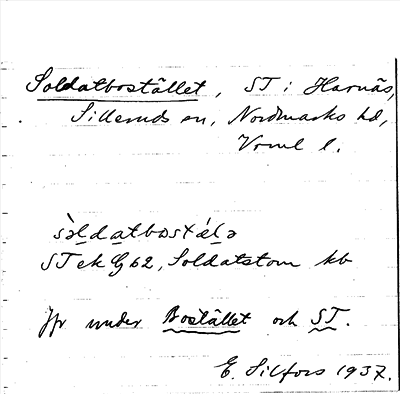 Soldatbostället, ST i Harnäs,
Silleruds sn, Nordmarks hd,
Vrml l.
sòldatbostélə
ST ek G 62, Soldatstom kb
Jfr under Bostället och ST.
E. Silfors 1937.